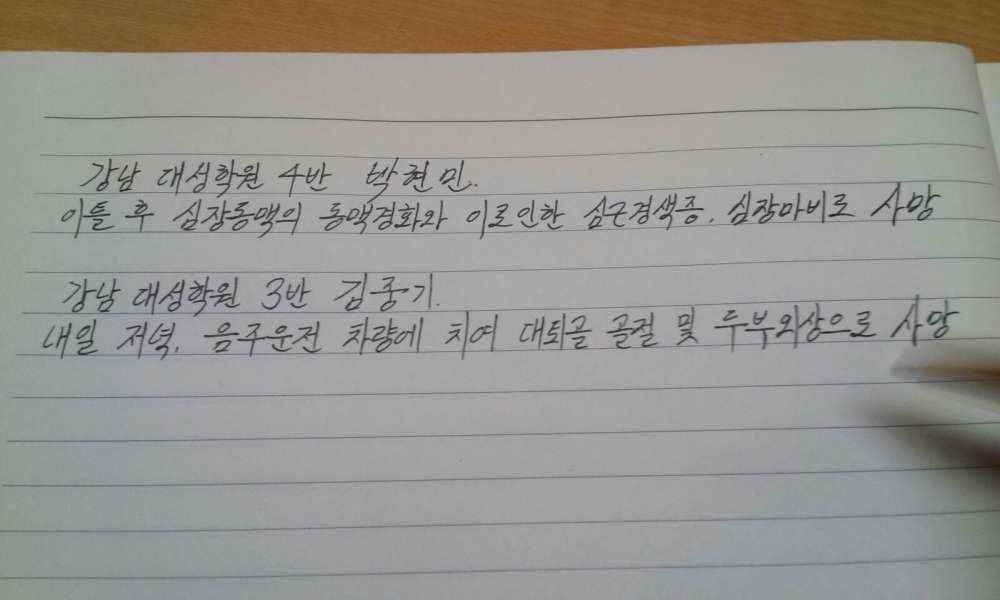 강남 대성학원 4반 박현민.
이틀 후 심장동맥의 동맥경화와 이로인한 심근경색증, 심장마비로 사망
강남 대성학원 3반 김중기.
내일 저녁, 음주운전 차량에 치여 대퇴골 골절 및 두부외상으로 사망